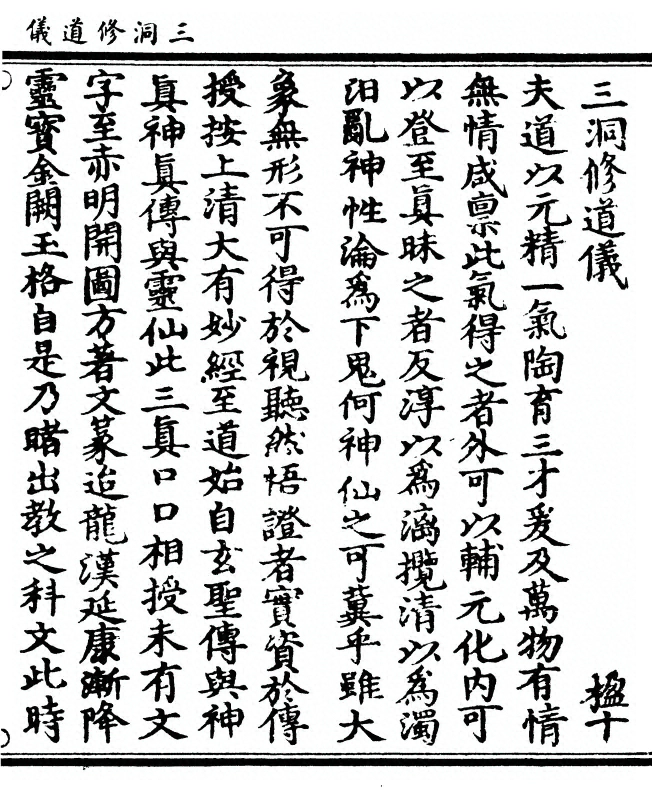 三洞修道儀
三洞修道儀　楹十
夫道以元精一氣陶育三才爰及萬物有情
無情咸禀此氣得之者外可以輔元化內可
以登至眞昧之者反淳以爲漓攪清以爲濁
汩亂神性淪爲下鬼何神仙之可冀乎雖大
象無形不可得於視聽然悟證者實資於傳
授按上清大有妙經至道始自玄聖傳與神
眞神眞傳與靈仙此三眞口口相授未有文
字至赤明開圖方著文篆迨龍漢延康漸降
靈寶金闕玉格自是乃睹出教之科文此時